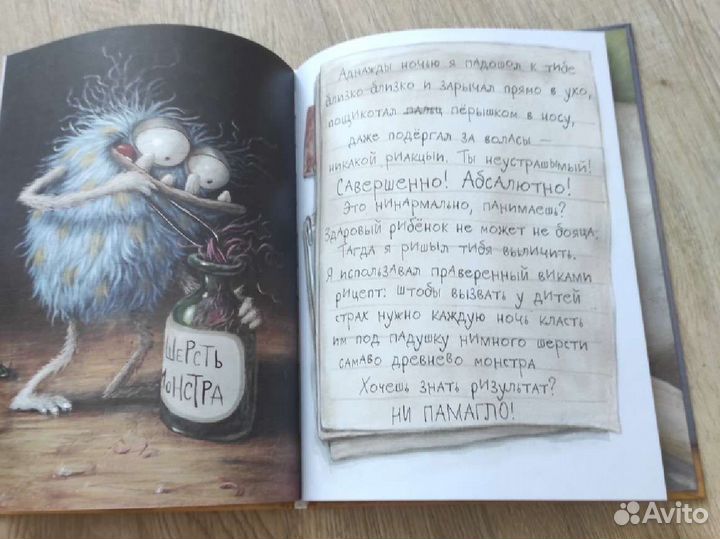 ШЕРСТЬ
МОНСТРА
Аднажды ночью я падошол к тибе
близко-близко и зарычал прямо в ухо,
пощикотал палц пёрышком в носу,
даже подёргал за воласы —
никакой риакцыи. Ты неустрашымый!
Савершенно! Абсалютно!
Это нинармально, панимаешь?
Здаровый рибёнок не может не бояца.
Тагда я ришыл тибя выличить.
Я использавал праверенный виками
рицепт: штобы вызвать у дитей
страх нужно каждую ночь класть
им под падушку нимного шерсти
самаво древнево монстра
Хочешь знать ризультат?
НИ ПАМАГЛО!
Avito